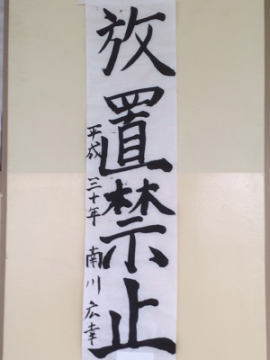 放置禁止
平成三十年 南川広幸